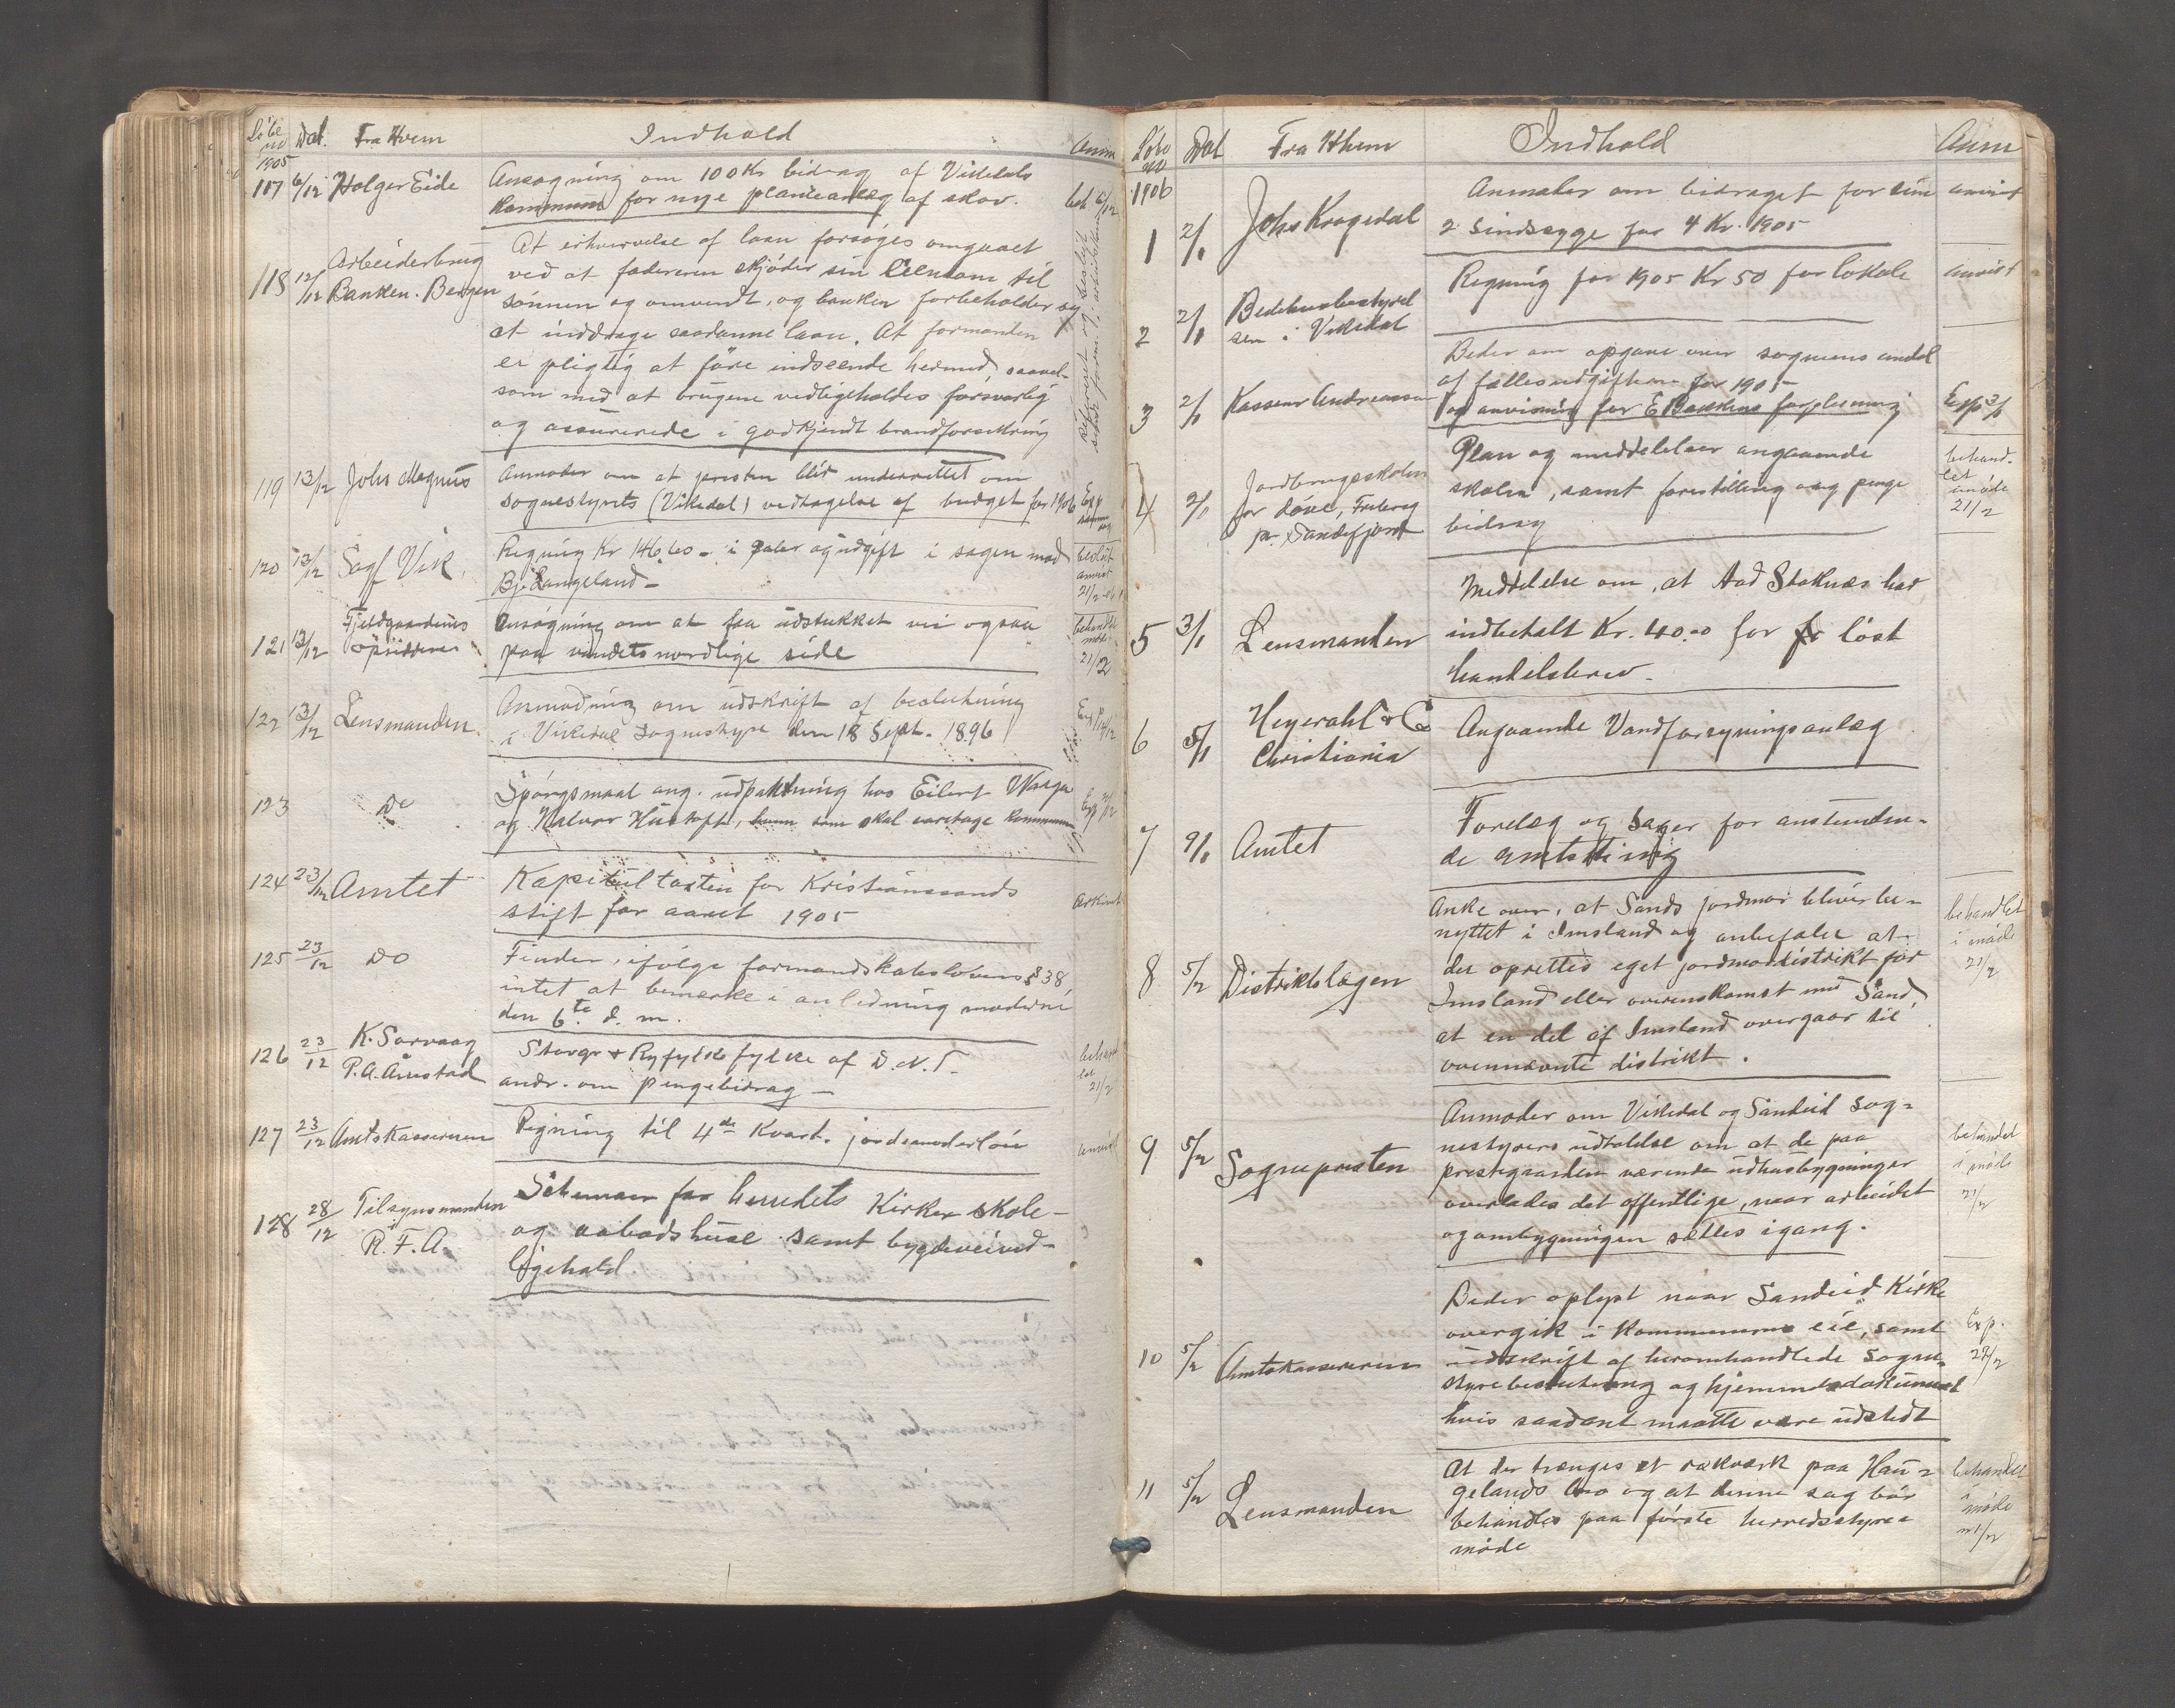 Løbe no Dat. Fra Hvem Indhold Anm
1905
117 6/12 Holger Eide Ansøgning om 100 Kr bidrag af Vikedals
Kommune for nye planteanlæg af skov.
At erhvervelse af laan forsøges omgaaet
118 12/12 Arbeiderbrug ved at fædrene skjøder sin eiendom til
Banken. Bergen sønnen og omvendt, og banken forbeholder sig
at inddrage saadanne laan. At formanden
er pligtig at føre indseende hermed, saavel-
som med at brugene vedligeholdes forsvarlig
og assurerede i godkjendt brandforsikring
119 13/12 Johs Magnus Anmoder om at presten blir underrettet om
sognestyrets (Vikedal) vedtagelse af budget for 1906 Exp
120 13/12 Sagf Vik. Regning Kr 146,60 i saler og udgift i sagen mod
Bj. Langeland – beslut anvist 21/2
121 13/12 Fjeldgaardenes Ansøgning om at faa udstukket vei ogsaa
opsiddere paa vandets nordlige side behandlet møde 21/2
122 13/12 Lensmanden Anmodning om udskrift af beslutning
i Vikedal Sognestyre den 18 Sept. 1896
123 Do Spørgsmaal ang. udpaktning hos Eilert Waage
og Halvor Hustoft, som skal varetage kommunen
124 23/12 Amtet Kapitultaxten for Kristianssands
stift for aaret 1905
125 23/12 Do Finder, ifølge formandskabslovens § 38,
intet at bemærke i anledning møderne
den 6te d. m.
126 23/12 K. Sørvaag Stavgr & Ryfylke fylke af D.N.T.
P.A. Amstad andr. om pengebidrag – behandlet 21/2
127 23/12 Amtskassereren Regning til 4de Kvart. jordemoderløn
128 28/12 Tilsynsmanden Schemaer for herredets Kirker skole-
R.F.A. og aabodshuse samt bygdeveived-
ligehold
Løbe no Dat Fra Hvem Indhold Anm
1906
1 2/1 Johs Kragedal Anmoder om bidraget for sine anvist
2 Sindssyge for 4 Kv. 1905
2 2/1 Bedehusbestyrel Regning for 1905 Kr 50 for lokale anvist
sen i Vikedal
3 2/1 Kasserer Andreassen Beder om opgave over sognenes andel
af fællesudgifterne for 1905
og anvisning for E Bakkens forpleining Exp
4 2/1 Jordbrugsskolen Plan og meddelelser angaaende
for døve, Freberg skolen, samt forestilling ang penge
pr. Sandefjord bidrag behandlet i møde 21/2
5 3/1 Lensmanden Meddelelse om, at Aad Stoknes har
indbetalt Kr. 40.00 for løst
handelsbrev –
6 5/1 Heyerdahl & Co Angaaende Vandforsyningsanlæg
Christiania
7 9/1 Amtet Forelæg og sager for anstunden-
de amtsting
8 5/2 Distriktslægen Anke over, at Sands jordmor bliver be-
nyttet i Imsland og anbefaler at
der oprettes eget jordmordistrikt for
Imsland eller overenskomst med Sand,
at en del af Imsland overgaar til
ovennævnte distrikt. behandlet i møde 21/2
9 5/2 Sognepresten Anmoder om Vikedal og Sandeid sog-
nestyrers udtalelse om at de paa
prestegaarden værende udhusbygninger
overlades det offentlige, naar arbeidet
og ombygningen sættes igang. behandlet i møde 21/2
10 5/2 Amtskassereren Beder oplyst naar Sandeid Kirke
overgik i Kommunens eie, samt
udskrift af heromhandlede Sogne-
styrebeslutning og hjemmelsdokument
hvis saadant maatte være udstedt Exp. 22/2
11 5/2 Lensmanden At der trænges et rækværk paa Hau-
gelands bro og at denne sag bør
behandles paa første herredsstyre-
møde behandlet i møde 21/2